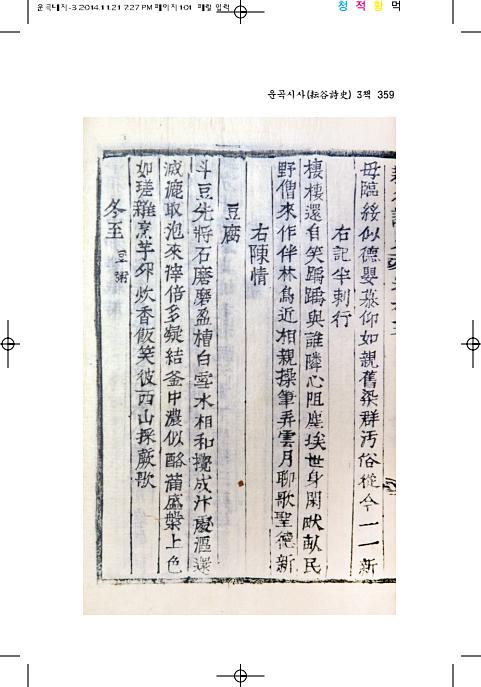 운곡시사-3 2014.11.21 7:27 PM 페이지101 매킬 입력
청 적 황 먹
운곡시사(耘谷詩史) 3책 359
母臨綏似德嬰慕仰如親舊染群汚俗從今一一新
右記牟刺行
棲棲還自笑踽踽與誰隣心阻塵埃世身閑畎畝民
野僧來作伴林鳥近相親操筆弄雲月聊歌聖德新
右陳情
豆腐
斗豆先將石磨磨盈槽白雪水相和攪成汁 漚還
滅漉取泡來滓倍多凝結釜中濃似酪滿盛槃上色
如瑳雜烹芋卵炊香飯笑彼西山採蕨歌
冬至 豆粥